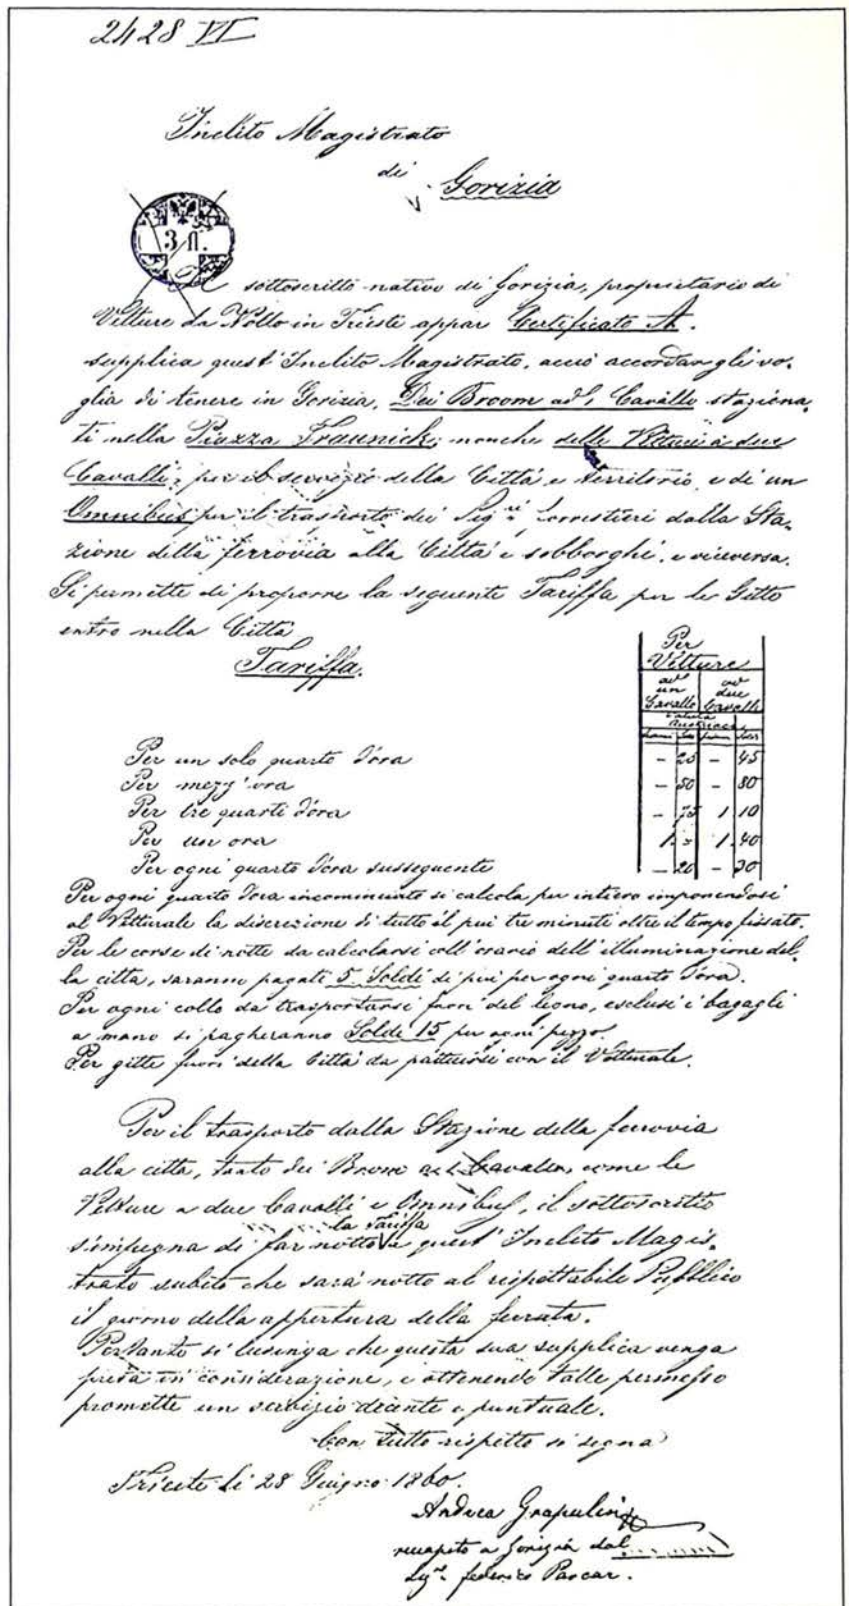 2428 VI
Inclito Magistrato
di
Gorizia
3 fl.
Il sottoscritto nativo di Gorizia, proprietario di
Vetture da Nollo in Trieste appar Certificato A.
supplica quest' Inclito Magistrato, acciò accordargli vo-
glia di tenere in Gorizia, Dei Broom ad 1 Cavallo staziona-
ti nella Piazza Traunick; nonche delle Vetture a due
Cavalli, per il servizio della Città e territorio, e di un
Omnibus per il trasporto dei Sigri forrestieri dalla Sta-
zione della ferrovia alla Città e sobborghi, e viceversa.
Si permette di proporre la seguente Tariffa per le Gitte
entro nella Città
Tariffa.
Per
Vetture
ad un Cavallo
ad due Cavalli
Valuta Austriaca
Per un solo quarto d'ora - 25 - 45
Per mezz'ora - 50 - 80
Per tre quarti d'ora - 75 1 10
Per un ora 1 - 1 40
Per ogni quarto d'ora susseguente - 20 - 30
Per ogni quarto d'ora incominciato si calcola per intiero imponendosi
al Vetturale la discrezione di tutto il più tre minuti oltre il tempo fissato.
Per le corse di notte da calcolarsi coll' orario dell' illuminazione del-
la città, saranno pagati 5 Soldi di più per ogni quarto d'ora.
Per ogni collo da trasportarsi fuori del legno, esclusi i bagagli
a mano si pagheranno Soldi 15 per ogni pezzo.
Per gitte fuori della Città da pattuirsi con il Vetturale.
Per il trasporto dalla Stazione della ferrovia
alla città, tanto dei Broom ad 1 Cavallo, come le
Vetture a due Cavalli e Omnibus, il sottoscritto
s'impegna di far notto la Tariffa a quest' Inclito Magis-
trato subito che sarà notto al rispettabile Pubblico
il giorno della appertura della ferrata.
Pertanto si lusinga che questa sua supplica venga
presa in considerazione, e ottenendo talle permesso
promette un servizio decente e puntuale.
Con tutto rispetto si segna
Trieste li 28 Giugno 1860.
Andrea Grapulin
recapito a Gorizia dal
Sigr. federico Pascar.